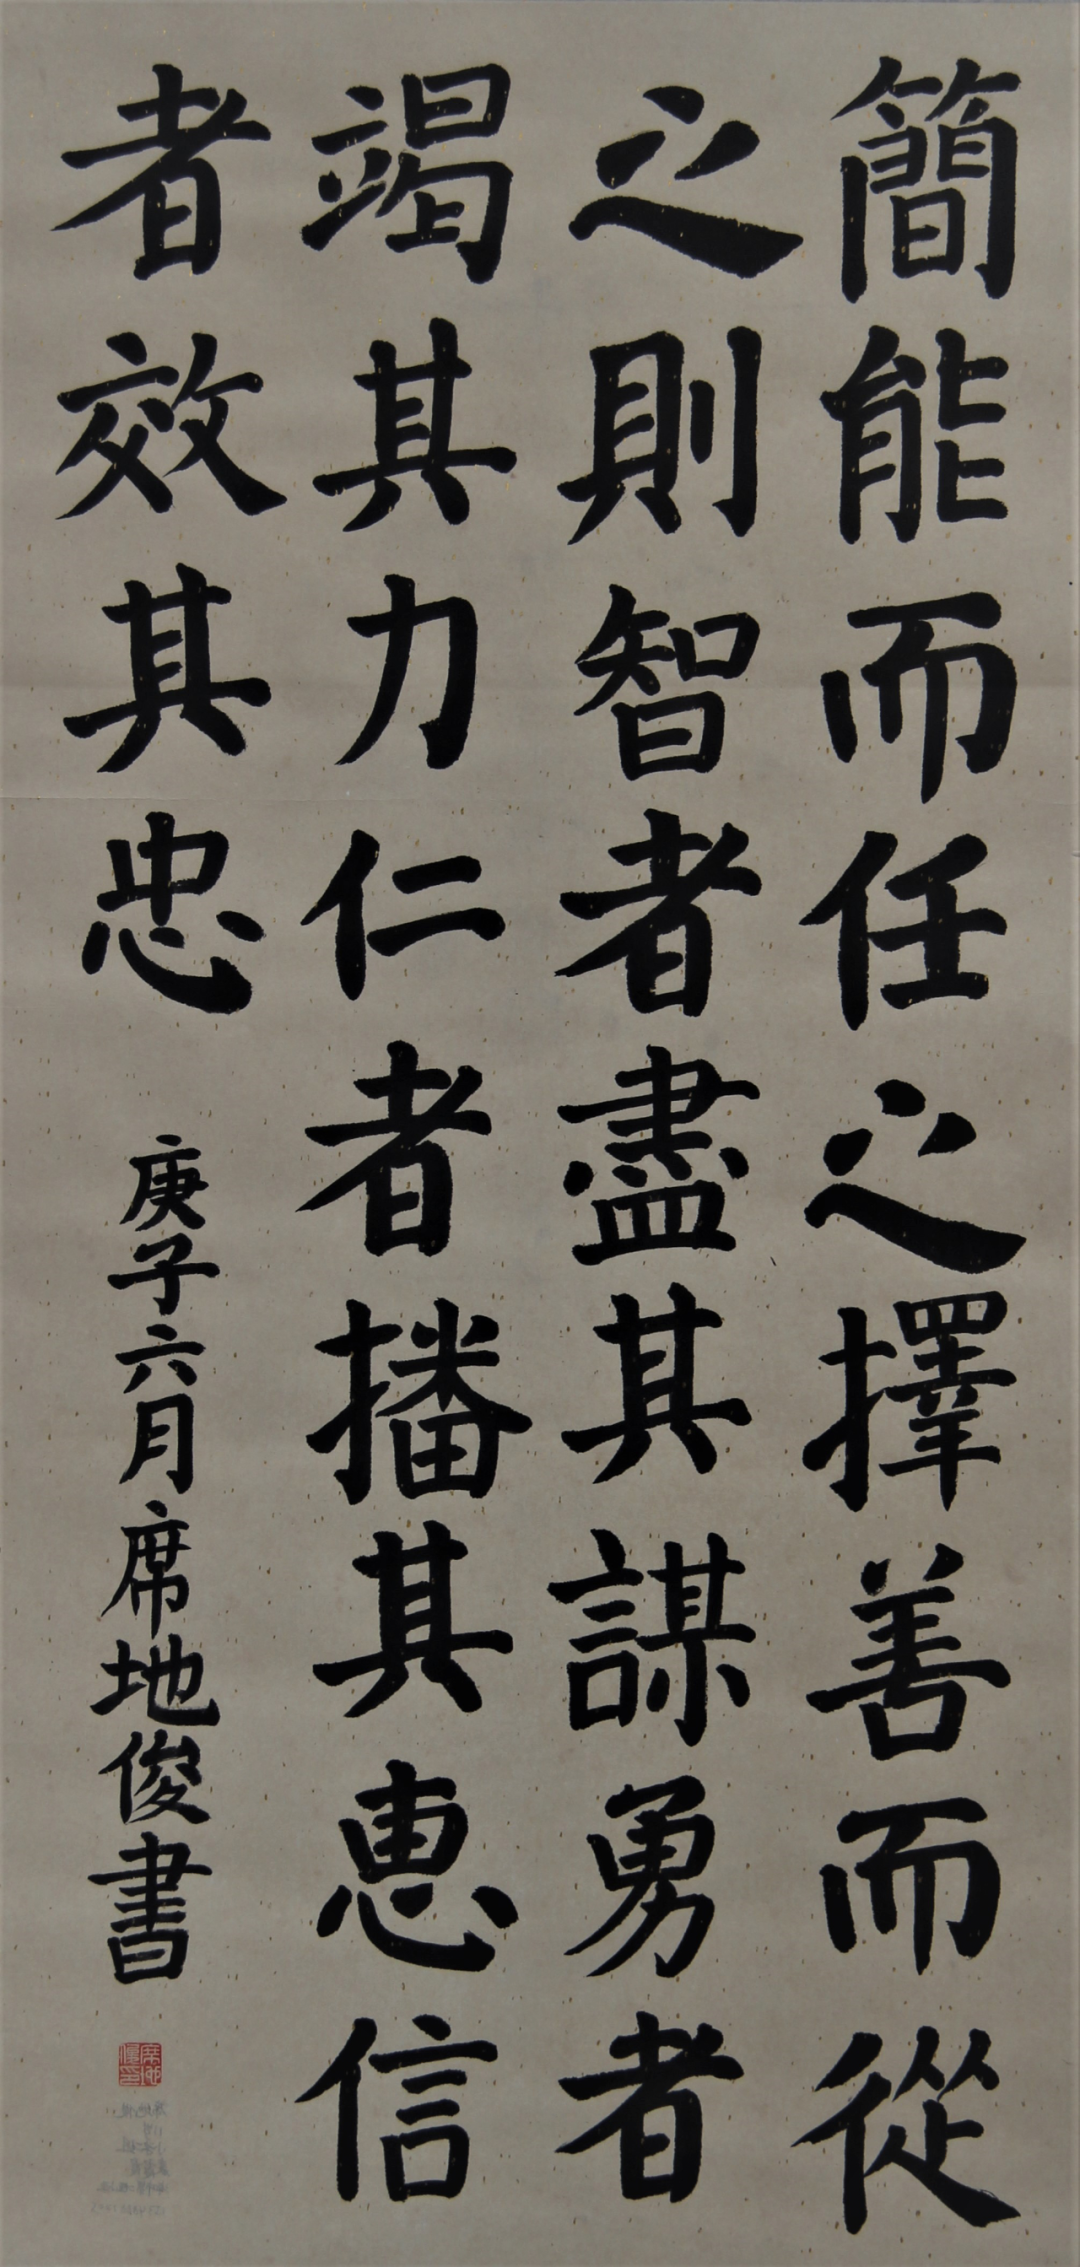 簡能而任之擇善而從
之則智者盡其謀勇者
竭其力仁者播其惠信
者效其忠
庚子六月席地俊書
席地俊印